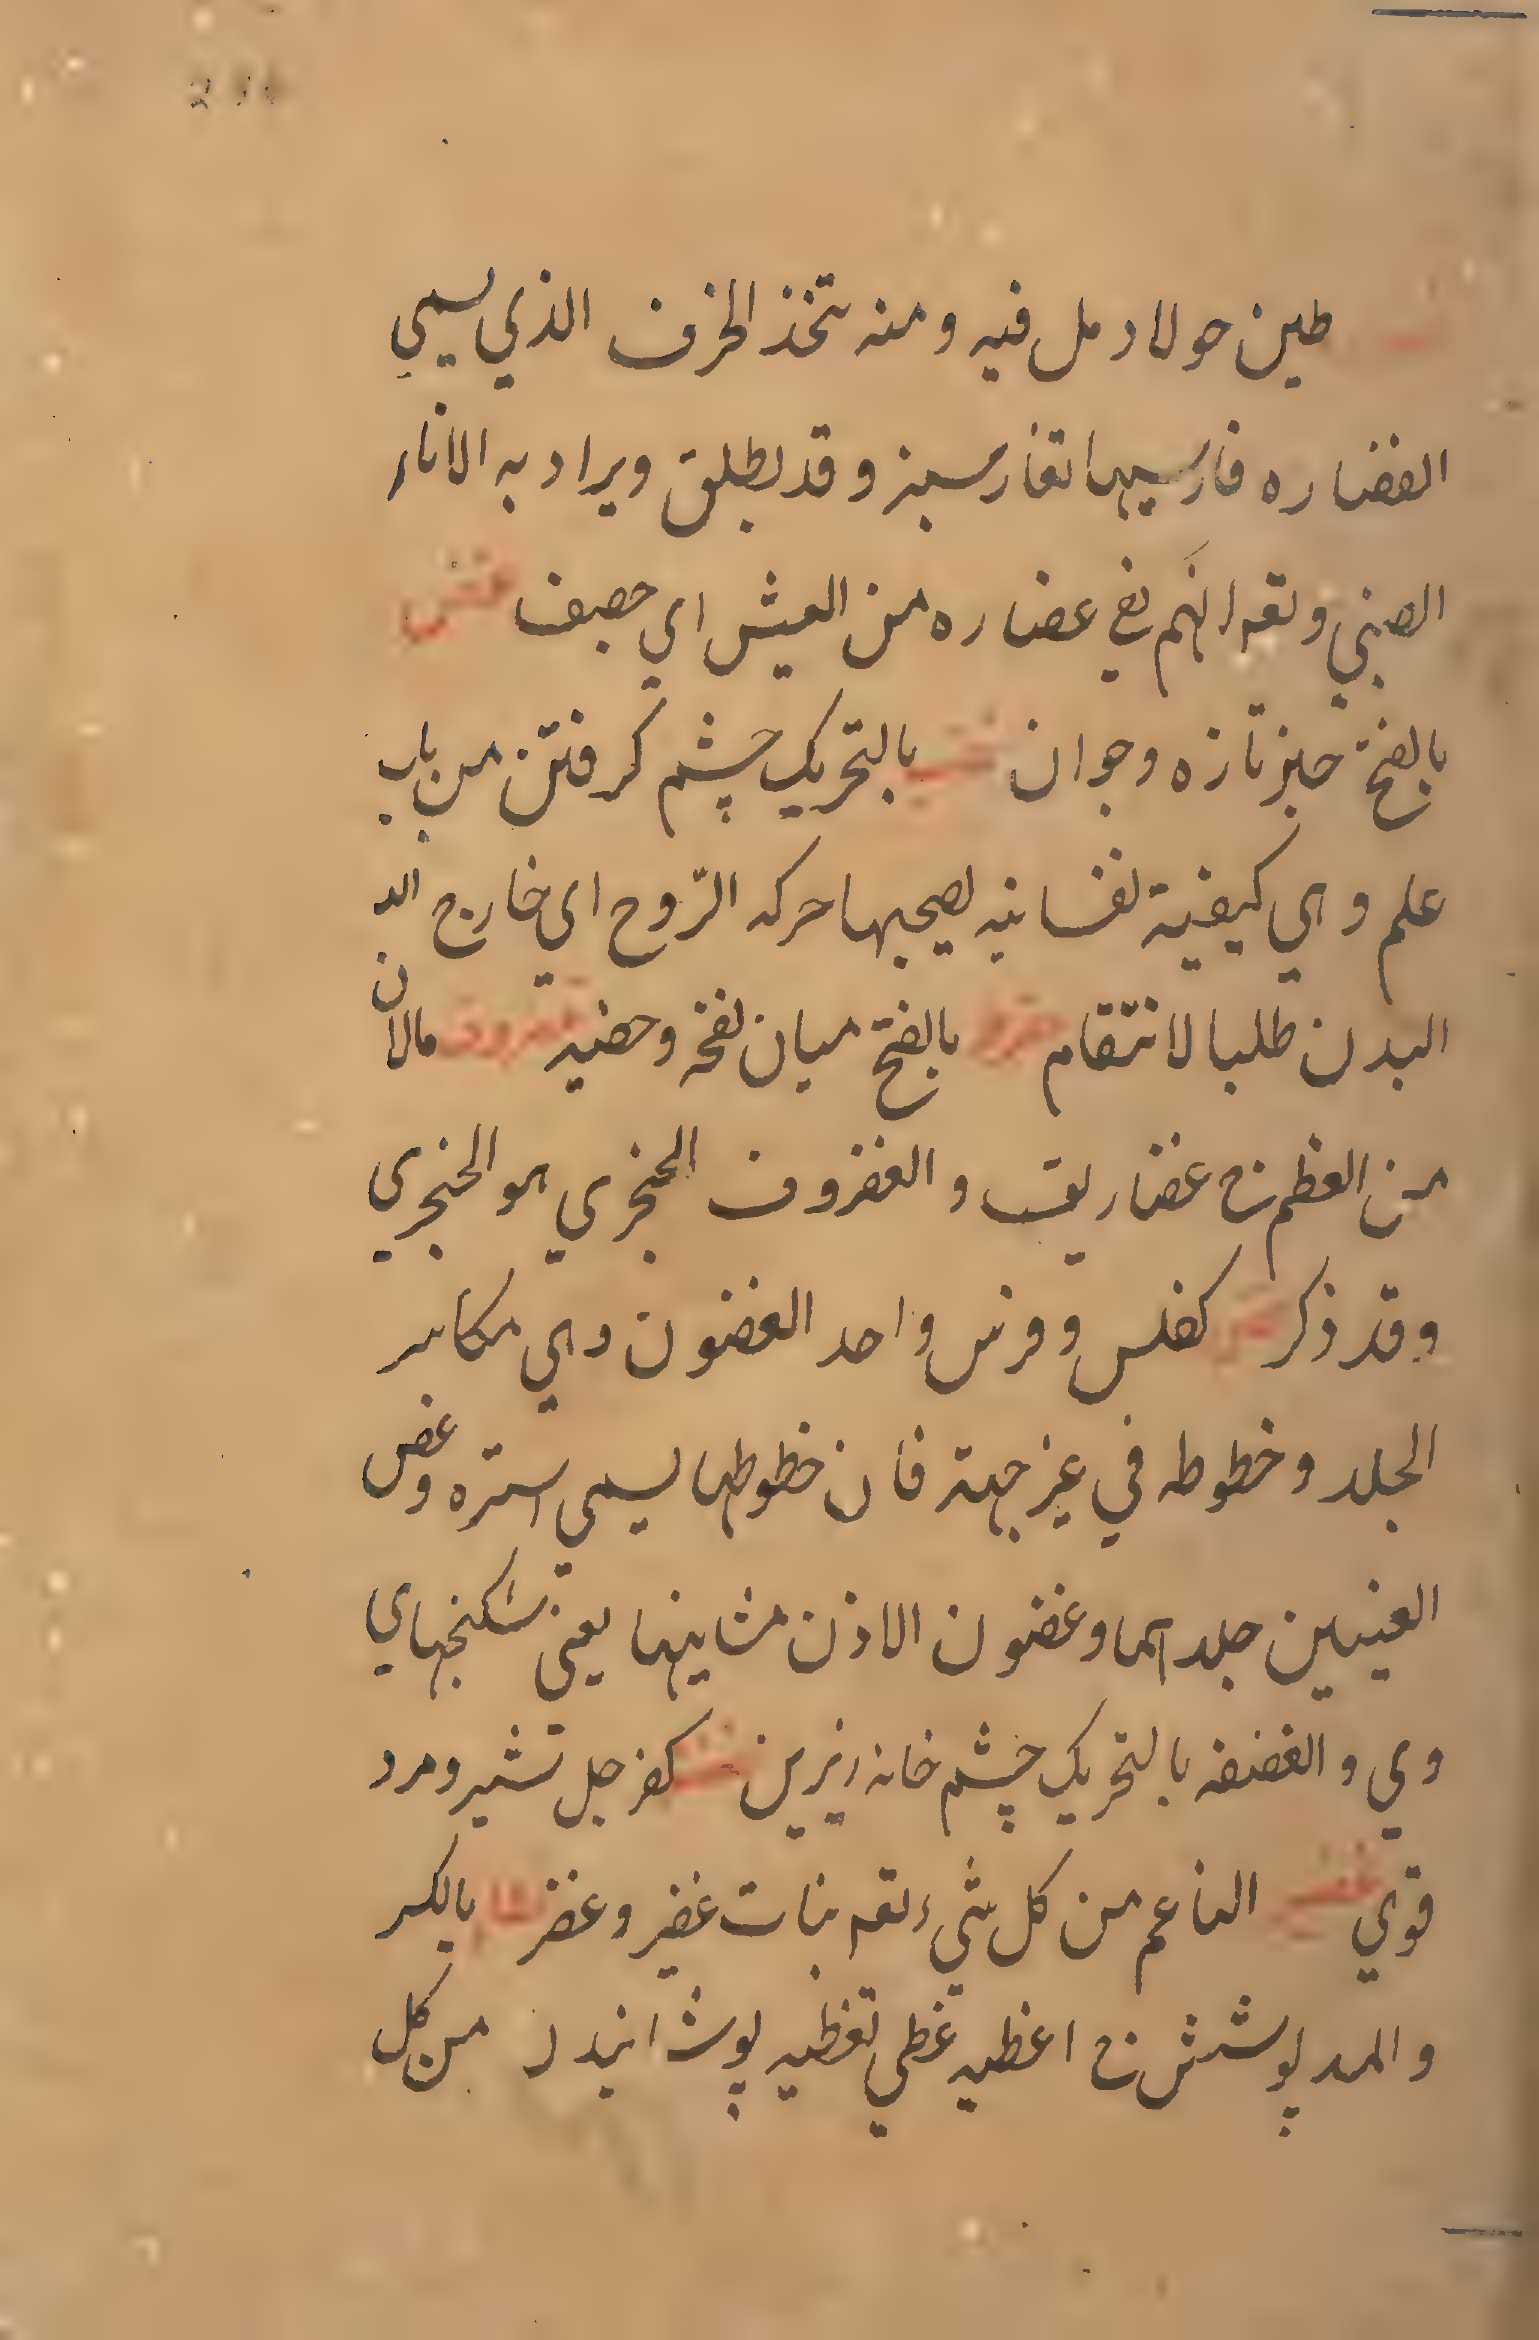 طين حو لا رمل فيه ومنه يتخذ الخزف الذي يسمي
الغضاره فارسيها تغار سبز وقد يطلق ويراد به الاناء
الصيني ويقم انهم لفي غضاره من العيش اي خصيف غض
بالفتح چيز تازه وجوان غضب بالتحريك خشم كرفتن من باب
علم وهي كيفية نفسانيه يصحبها حركه الروح اي خارج
البدن طلبا لانتقام بالفتح ميان نفخه وحضيه غضروف مالان
من العظم ج غضاريف والغضروف الحنجري هو الخنجري
وقد ذكر غضن كفلس وفرس واحد الغضون وهي مكاسر
الجلد وخطوطه في غير جبهة فان خطوطها يسمي اسره وغضن
العينين جلدهما وغضون الاذن مثانيها يعني شكنجهاي
وي والغضنه بالتحريك چشم خانه زيرين كفرجل شير ومرد
قوي غضير الناعم من كل شيء يقم نبات غضير وغضر غطا بالكسر
والمد پوشش ج اغطيه غطي تغطيه پوشانيدن من كل